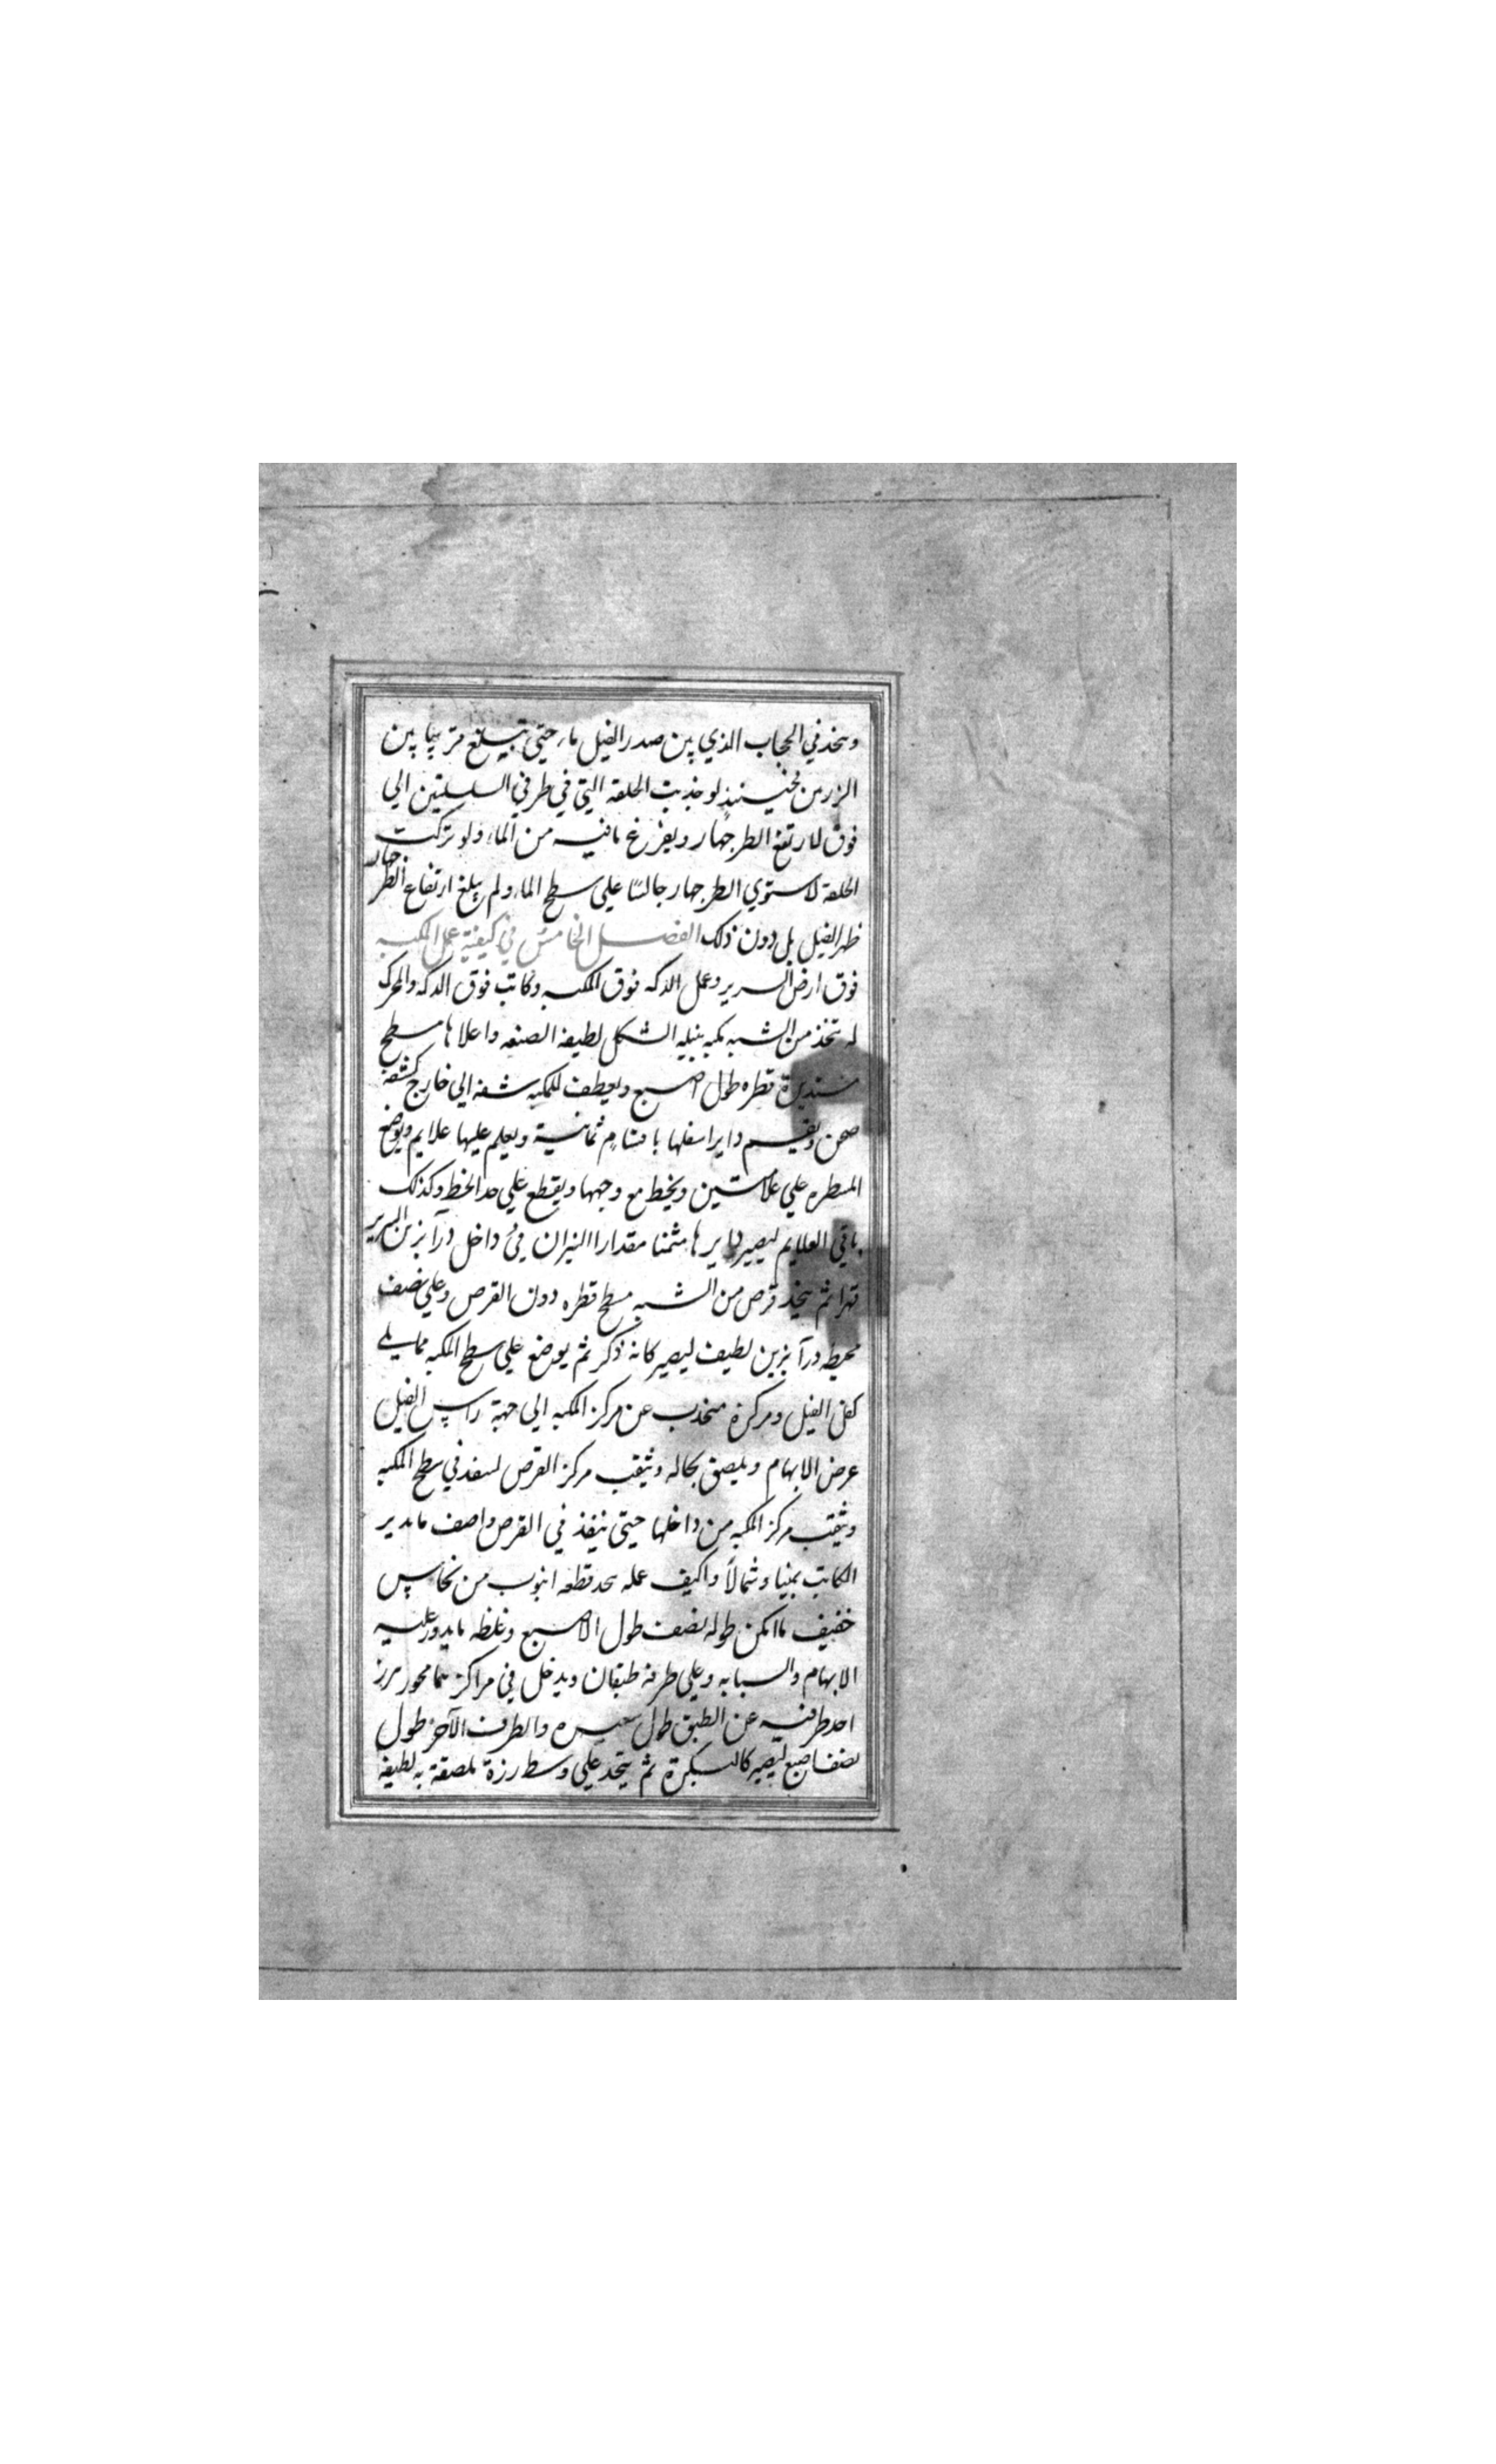 ويتخذ في الحجاب الذي بين صدر الفيل ماء حتى تبلغ قريبا بين
الزرمن فحينئذ لو جذبت الحلقة التي في طرفي السلسلتين الي
فوق لارتفع الطرجهار ويفرغ ما فيه من الماء ولو تركت
الحلقة لاستوي الطرجهار جالسا علي سطح الماء ولم يبلغ ارتفاع الطرجهار
ظهر الفيل بل دون ذلك الفصل الخامس في كيفية عمل المكبه
فوق ارض السرير وعمل الدكه فوق المكبه وكاتب فوق الدكه والمحرك
له يتخذ من الشبه مكبه الشكل لطيفة الصنعه واعلاها مسطح
مستديرة قطره طول اصبع ويعطف للمكبه شفه الي خارج كشفة
صحن ويقسم داير اسفلها باقسام ثمانية ويعلم عليها علايم ويوضع
المسطره علي علامتين ويخط مع وجهها ويقطع علي حد الخط وكذلك
باقي العلايم ليصير دايرها مثمنا مقدارا لينزل في داخل درابزين السرير
قهرا ثم يتخذ قرص من الشبه مسطح قطره دون القرص وعلي نصف
محيطه درآبزين لطيف ليصير كانه ذكر ثم يوضع علي سطح المكبه مما يلي
كفل الفيل ومركزه منجذب عن مركز المكبه الي جهة راس الفيل
عرض الابهام ويلصق بحاله ويثقب مركز القرص لينفذ في سطح المكبه
ويثقب مركز المكبه من داخلها حتى ينفذ في القرص واصف ما يدير
الكاتب يمينا وشمالا واكيف عمله يتخذ قطعه انبوب من نحاس
خفيف ما امكن طوله نصف طول الاصبع وغلظه ما يدور عليه
الابهام والسبابه وعلي طرفه طبقان ويدخل في مراكزهما محور يبرز
احد طرفيه عن الطبق طول شعيره والطرف الآخر طول
نصف اصبع ليصير كالبكرة ثم يتخذ علي وسط رزة ملصقة به لطيفة